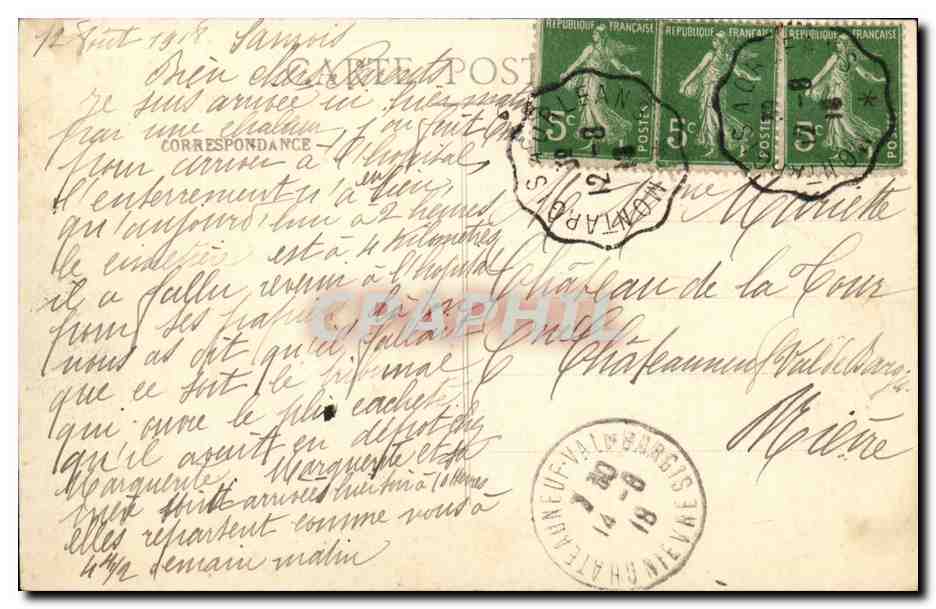 12 août 1918 Sancois
CARTE POSTALE
Bien chers Parents
Je suis arrivée ici hier matin
par une chaleur
CORRESPONDANCE
pour arriver à l'hopital
l'enterrement n'a eu lieu
qu'aujourd'hui à 2 heures
le cimetière est à 4 kilomètres
il a fallu revenir à l'hopital
pour ses papiers là on
nous as dit qu'il fallait
que ce soit le tribunal
qui ouvre le pli cacheté
qu'il avait en dépot chez
Marguerite. Marguerite et sa
arrivées hier soir à 10 heures
elles repartent comme nous à
4h 1/2 demain matin
REPUBLIQUE FRANÇAISE
5c
POSTES
REPUBLIQUE FRANÇAISE
5c
POSTES
REPUBLIQUE FRANÇAISE
5c
POSTES
MONTARGIS A ORLEANS
12 -8
18
Mariette
Château de la Tour
Châteauneuf Val de Bargis
Nièvre
CHATEAUNEUF-VAL-DE-BARGIS NIEVRE
7 30
14 -8
18
CPAPHIL